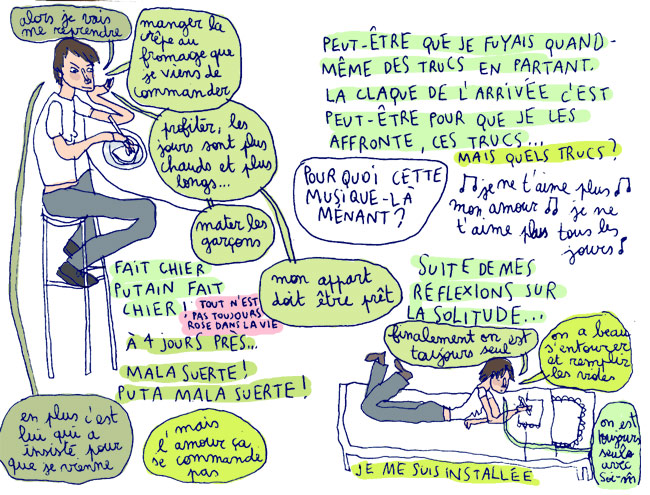 alors je vais
me reprendre
manger la
crêpe au
fromage que
je viens de
commander
profiter, les
jours sont plus
chauds et plus
longs...
mater les
garçons
mon appart
doit être prêt
FAIT CHIER
PUTAIN FAIT
CHIER !
TOUT N'EST
PAS TOUJOURS
ROSE DANS LA VIE
À 4 JOURS PRÈS...
MALA SUERTE !
PUTA MALA SUERTE !
en plus c'est
lui qui a
insisté pour
que je vienne
mais
l'amour ça
se commande
pas
PEUT-ÊTRE QUE JE FUYAIS QUAND-
MÊME DES TRUCS EN PARTANT.
LA CLAQUE DE L'ARRIVÉE C'EST
PEUT-ÊTRE POUR QUE JE LES
AFFRONTE, CES TRUCS...
MAIS QUELS TRUCS ?
POURQUOI CETTE
MUSIQUE-LÀ
MÈNANT ?
♫ je ne t'aime plus ♫
mon amour ♫ je ne
t'aime plus tous les
jours ♪
SUITE DE MES
RÉFLEXIONS SUR
LA SOLITUDE...
finalement on est
toujours seul
on a beau
s'entourer
et remplir
les vides
on est
toujours
seuls
avec
soi-m
JE ME SUIS INSTALLÉE